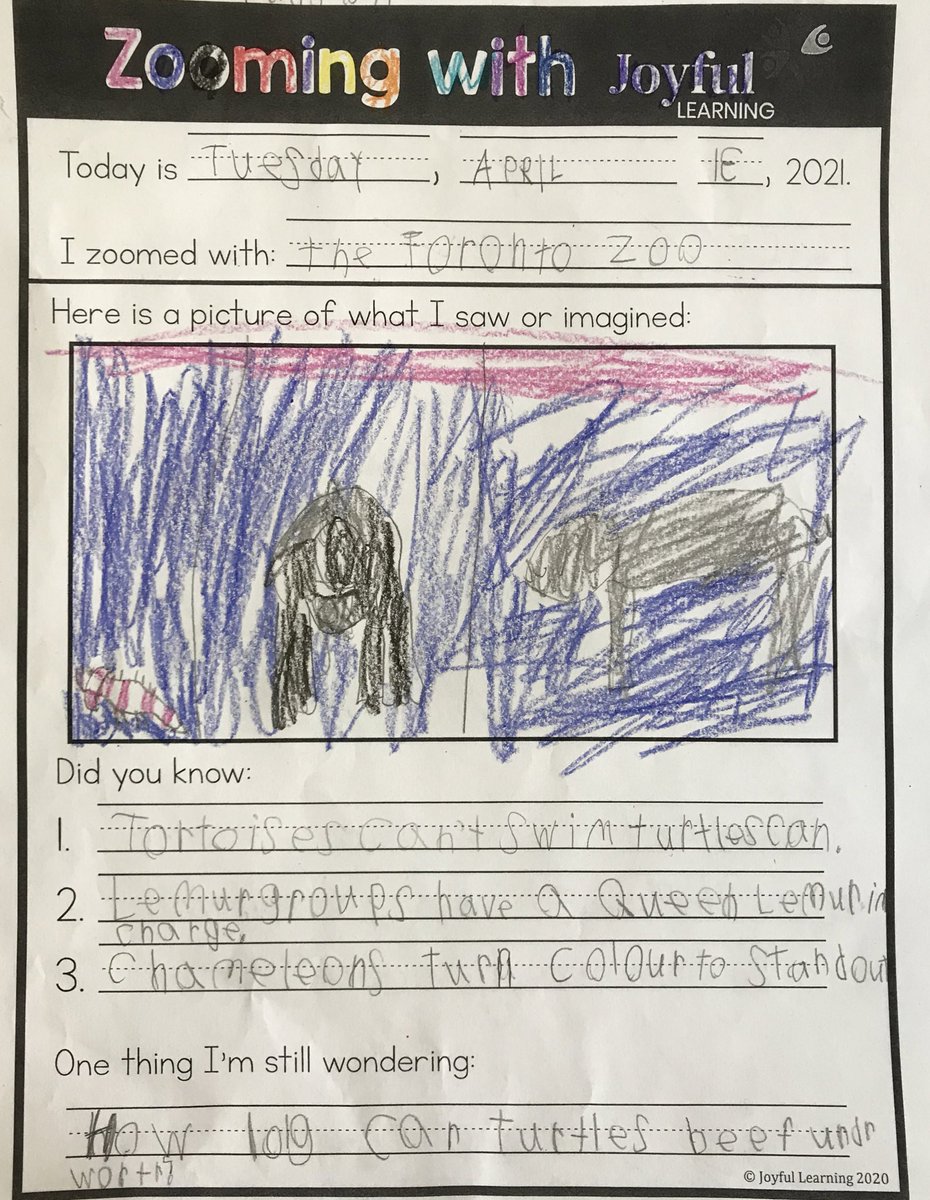 Zooming with Joyful
LEARNING
Today is Tuesday, APRIL, 2021.
I zoomed with: the Toronto zoo
Here is a picture of what I saw or imagined:
Did you know:
1. Tortoises can't swim turtles can.
2. Lemur groups have a Queen Lemur in
charge.
3. Chameleons turn colour to standout
One thing I'm still wondering:
How log can turtles beef undr
© Joyful Learning 2020